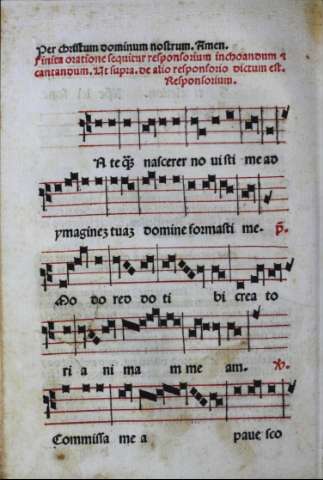 Per christum dominum nostrum. Amen.
Finita oratione sequitur responsorium inchoandum ⁊
cantandum. Ut supra. de alio responsorio dictum est.
Responsorium.
A te qȝ nascerer no ui sti me ad
ymaginez tuaz domine formasti me. p̄.
Mo do red do ti bi crea to
ri a ni ma m me am. ℣.
Commissa me a paue sco